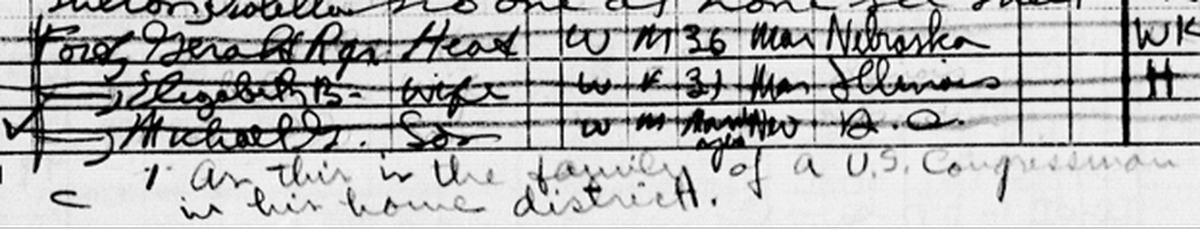 no one at home see sheet
Ford, Gerald R Jr. Head W M 36 Mar Nebraska WK
—, Elizabeth B. Wife W F 31 Mar Illinois H
—, Michael G. Son W M Nev D.C.
An this is the family of a U.S. Congressman
C in his home district.